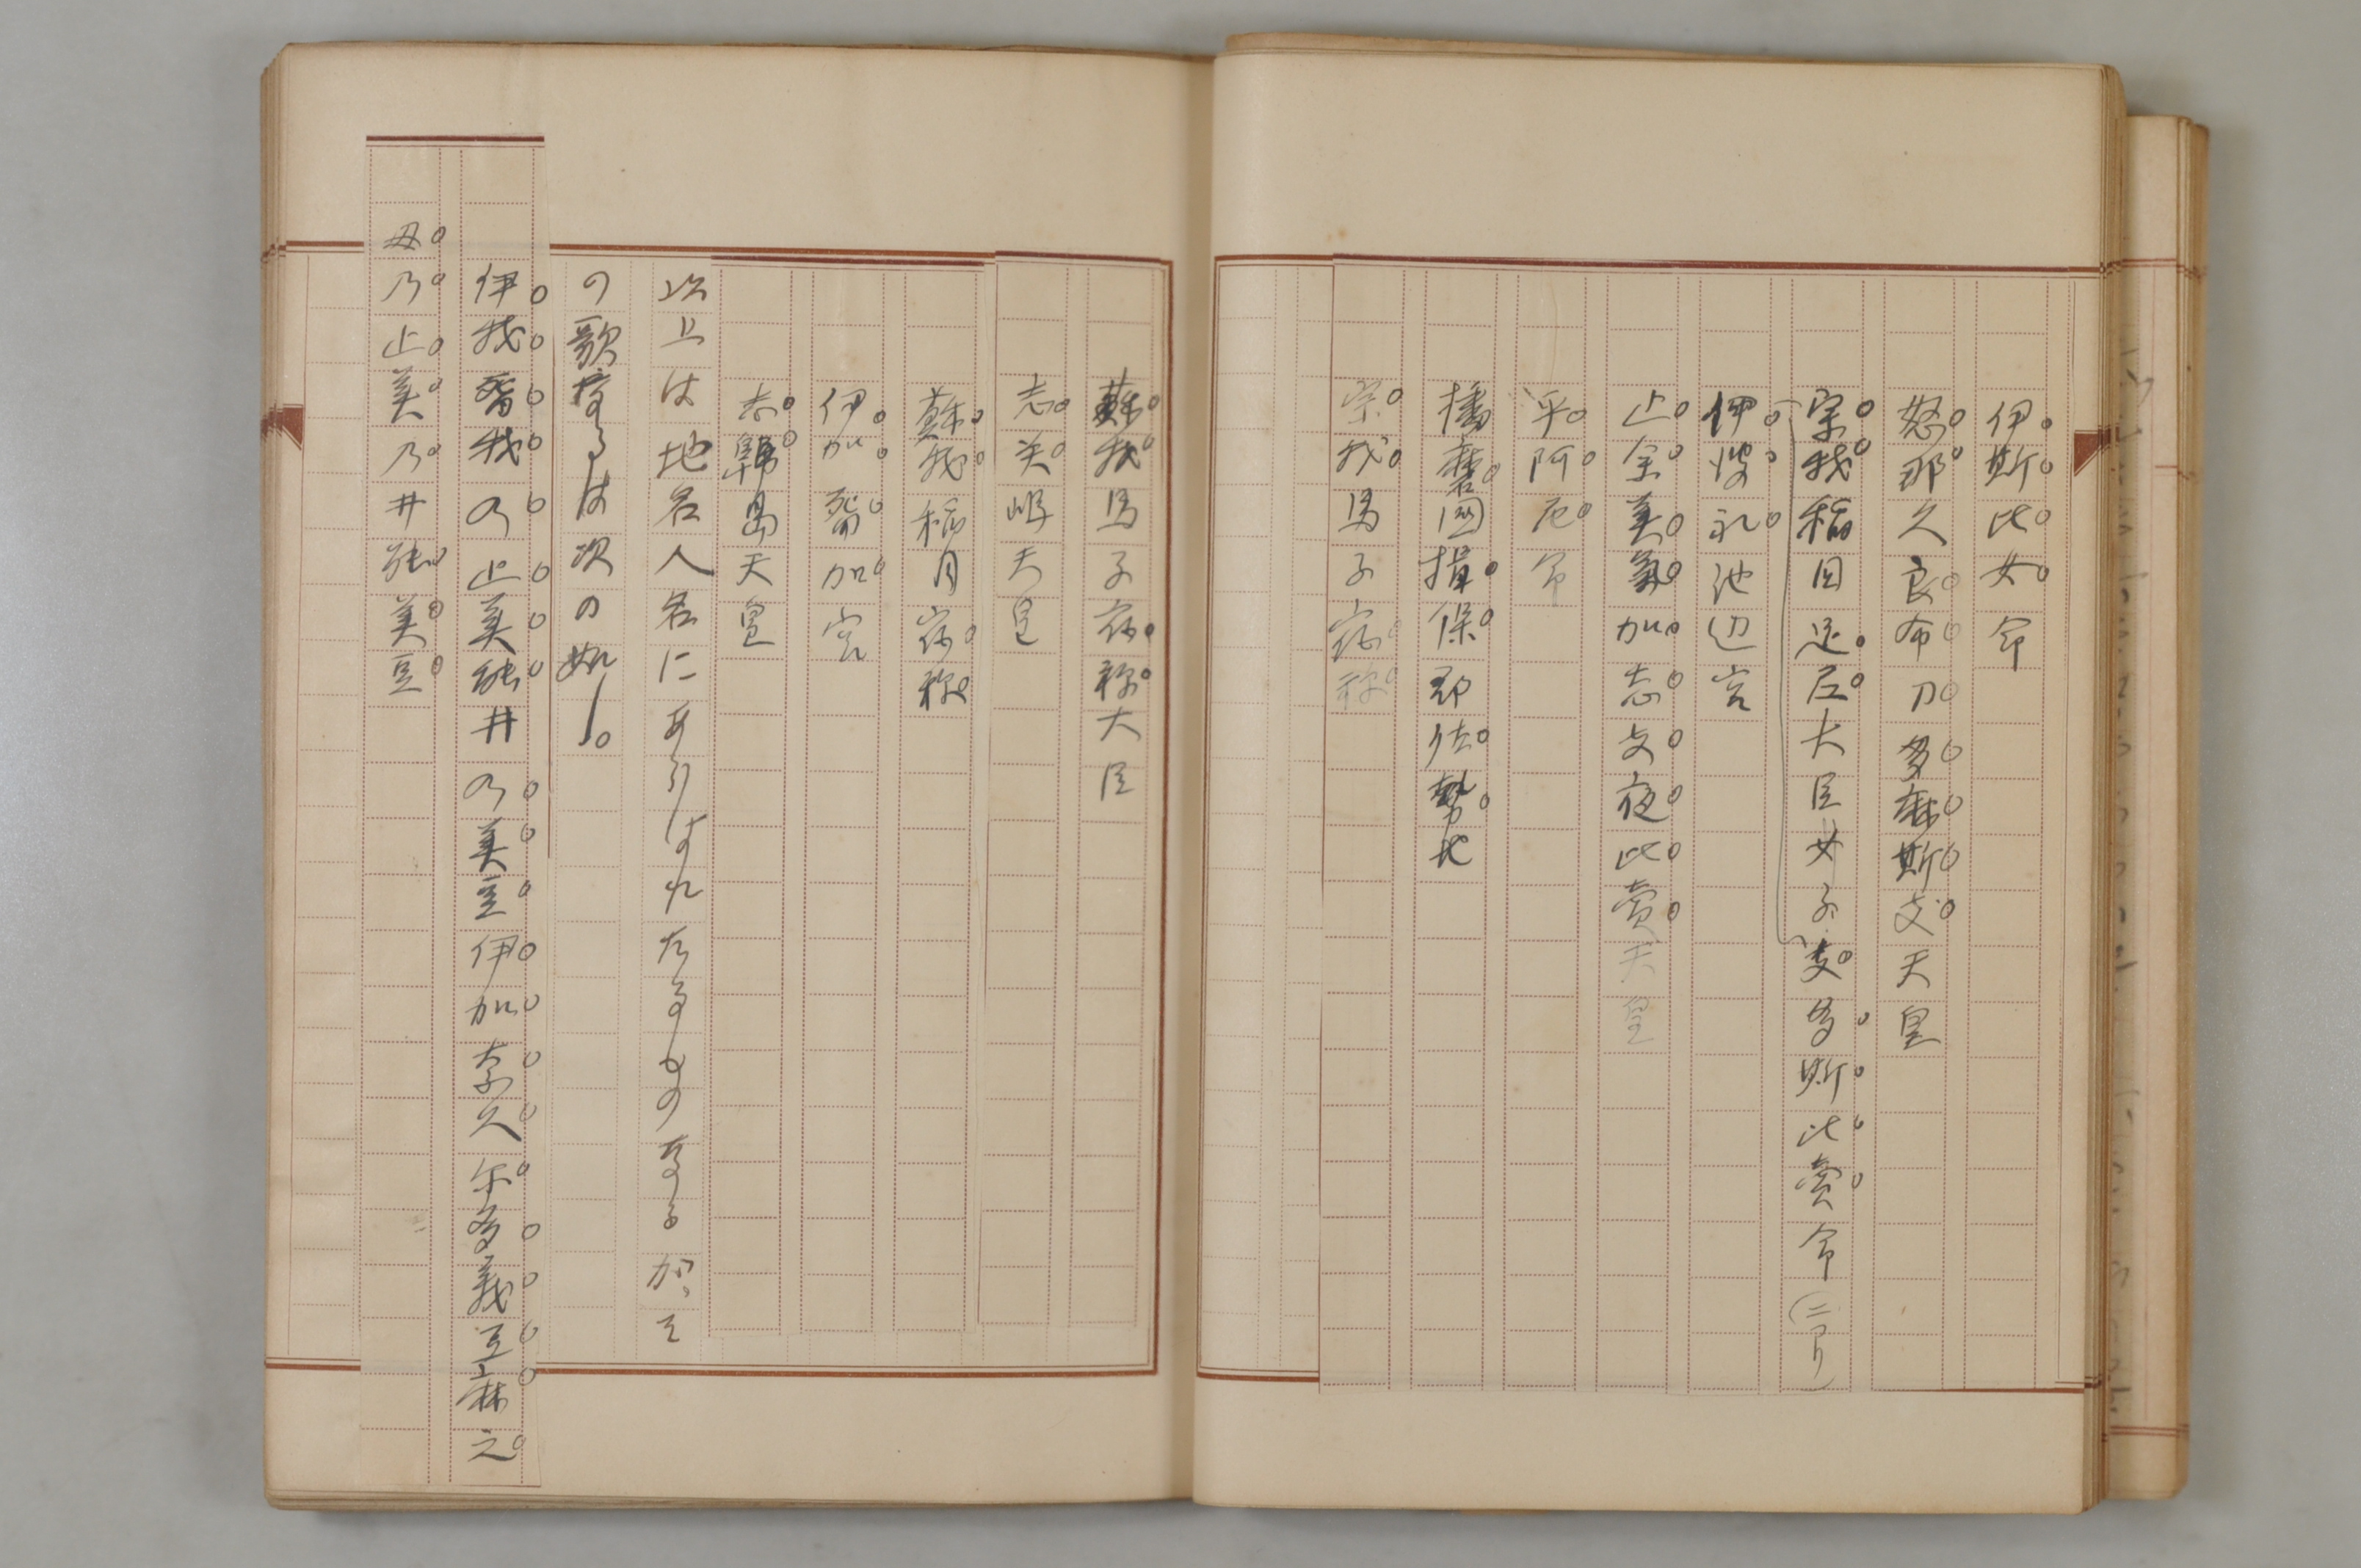 伊斯比女命
怒那久良布刀多麻斯支天皇
宗我稲目足尼大臣女子支多斯比売命(ニアリ)
伊波礼池辺宮
止余美氣加志支夜比売天皇
乎阿尼命
播磨国揖保郡佐勢地
宗我馬子宿祢
蘇我馬子宿祢大臣
志癸嶋天皇
蘇我稲目宿祢
伊加留加宮
志歸島天皇
以上は地名人名にあらはれたるものなるが、そ
の歌なるは次の如し。
伊我留我乃止美能井乃美豆伊加奈久尓多義弖麻之
母乃止美乃井能美豆